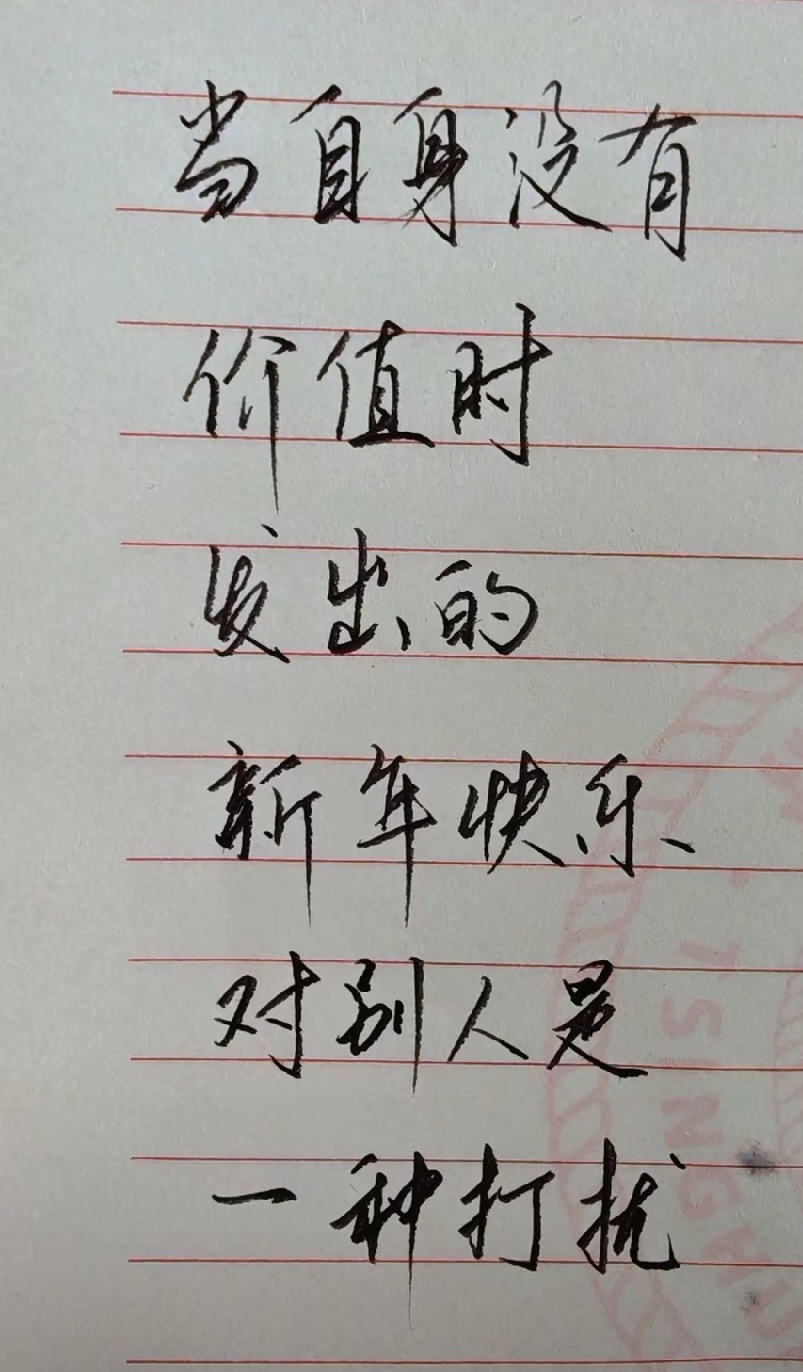 当自身没有
价值时
发出的
新年快乐
对别人是
一种打扰
TSINGHU